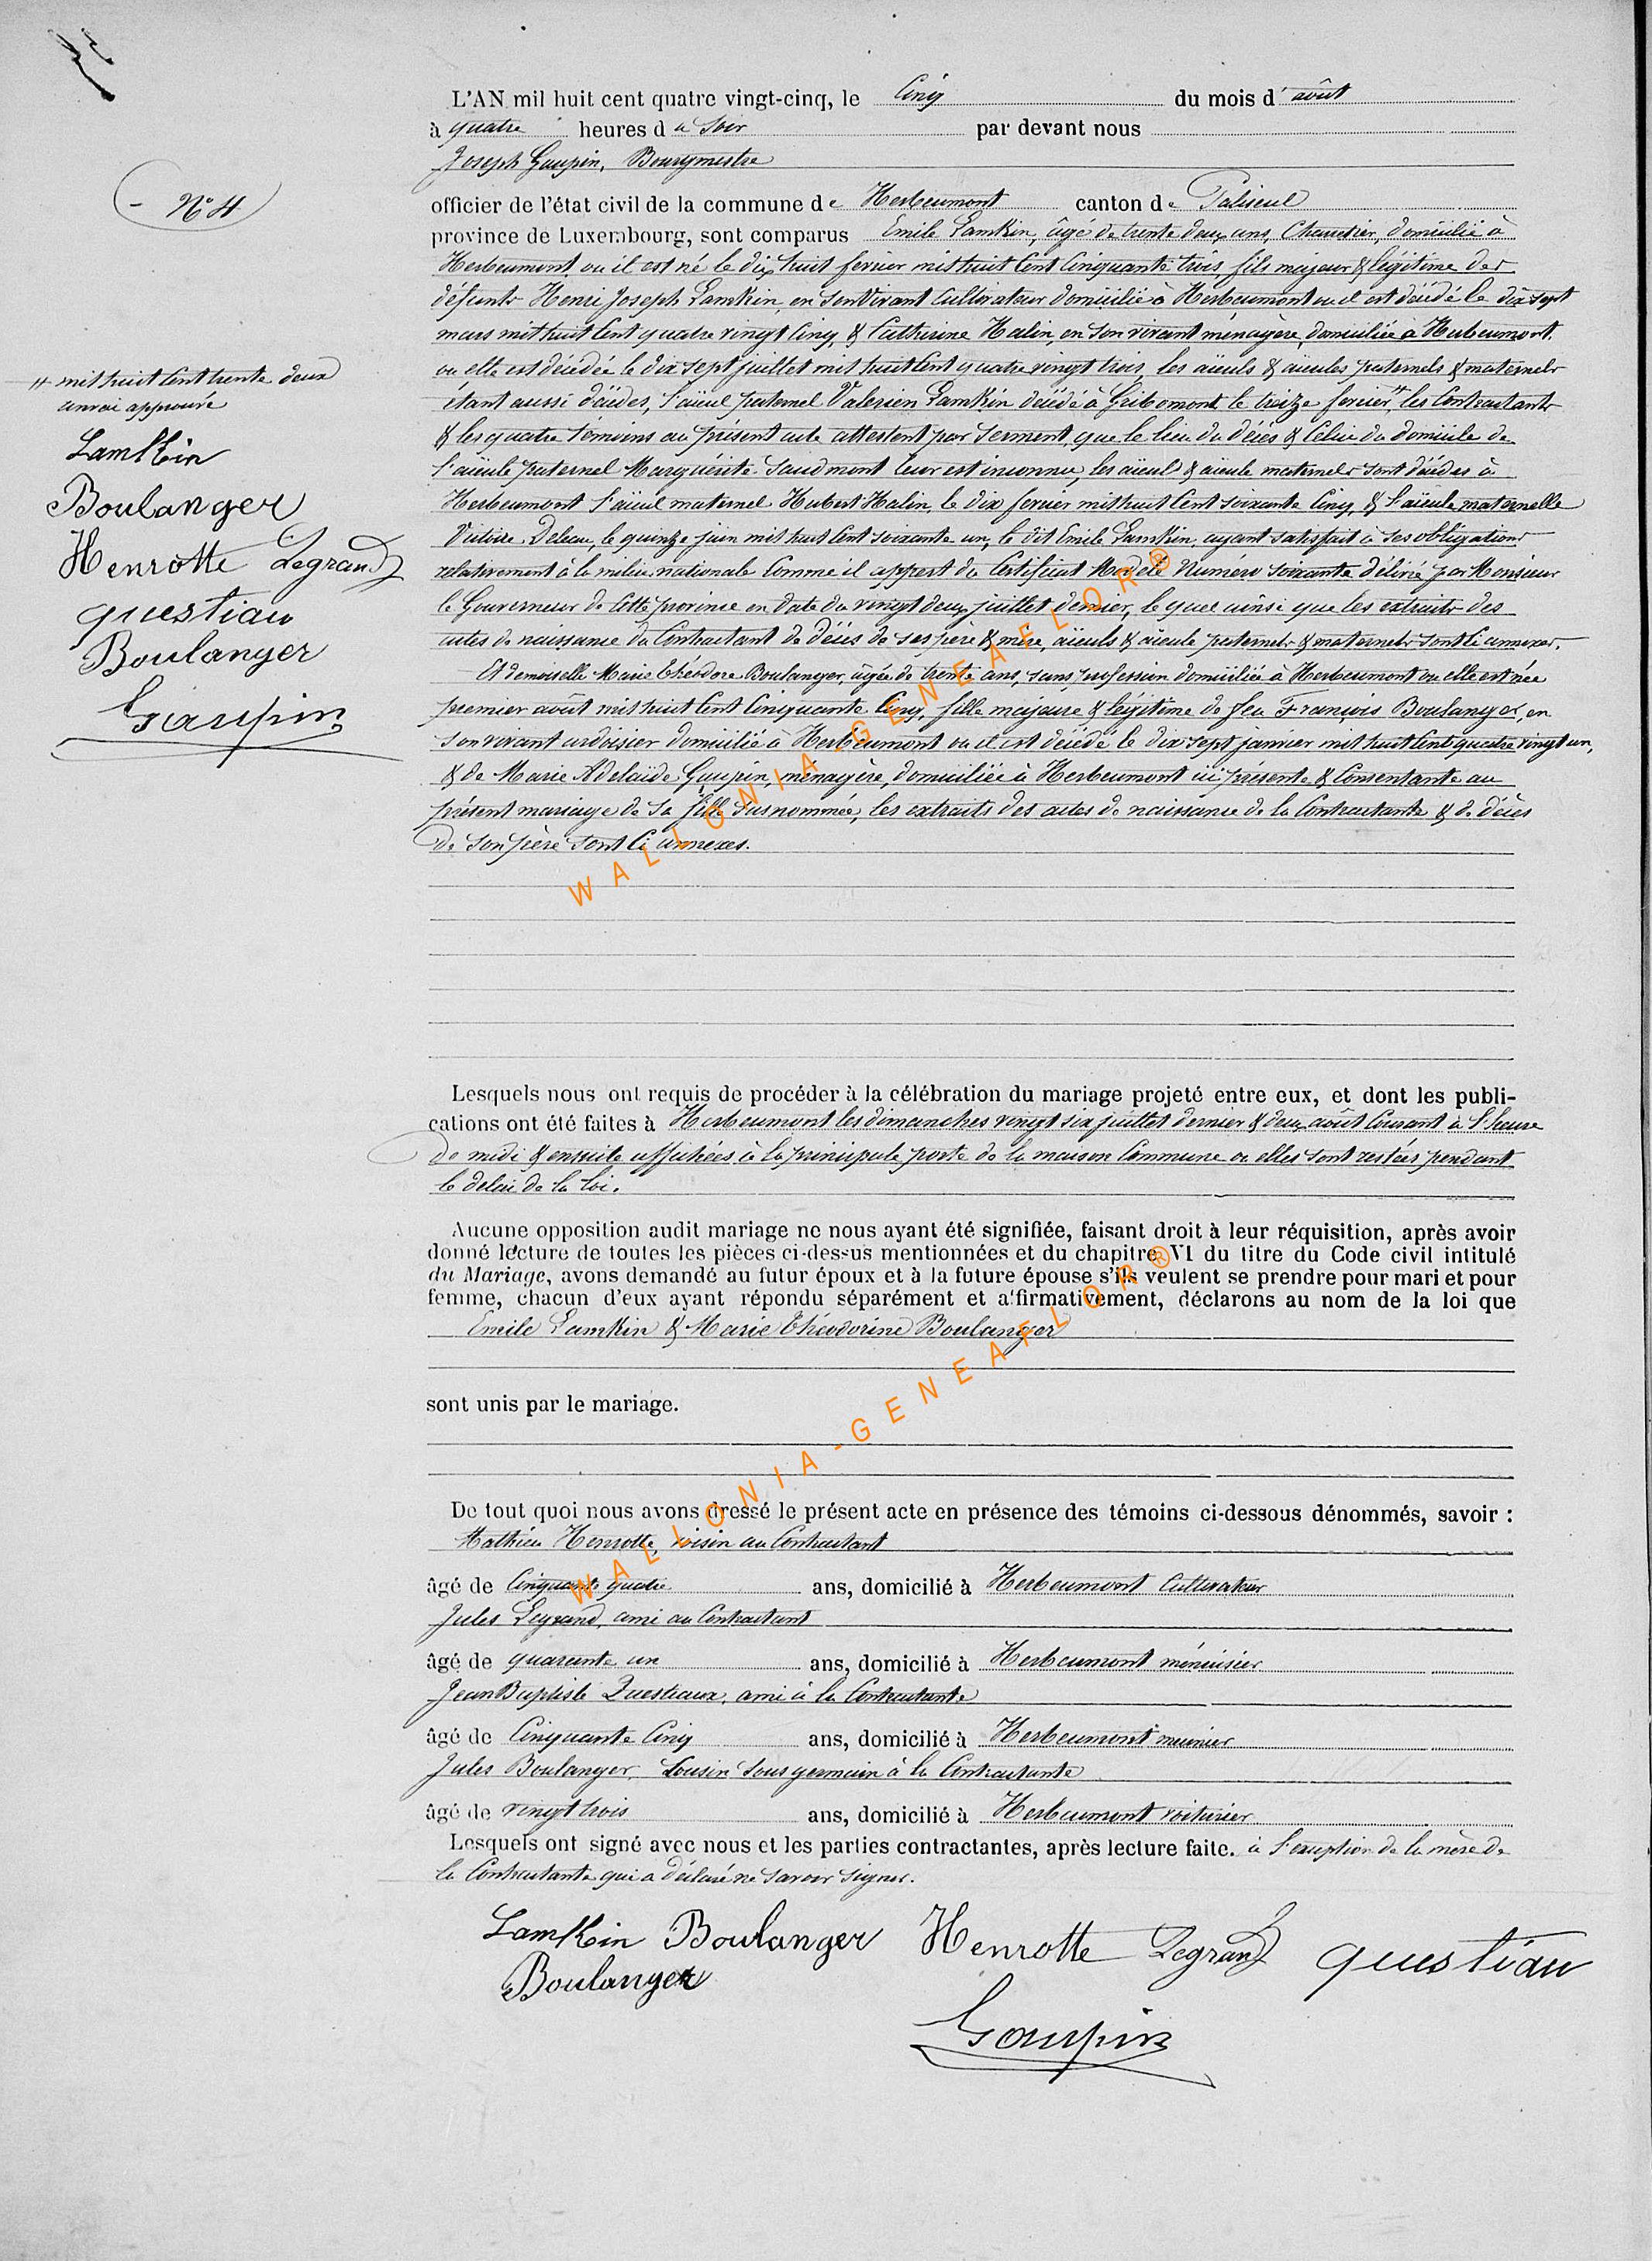 - N° 4
" mil huit cent trente deux
envoi approuvé
Lamkin
Boulanger
Henrotte Legrand
questiau
Boulanger
Gaupin
L'AN mil huit cent quatre vingt-cinq, le Cinq du mois d' août
à quatre heures du Soir par devant nous
Joseph Gaupin, Bourgmestre
officier de l'état civil de la commune de Herbeumont canton de Paliseul
province de Luxembourg, sont comparus Emile Lamkin, âgé de trente deux ans, domicilié à
Herbeumont, ou il est né le dix huit fevrier mil huit Cent Cinquante trois, fils majeur & légitime des
défunts Henri Joseph Lamkin, en son vivant Cultivateur domicilié à Herbeumont ou il est décédé le dix sept
mars mil huit Cent quatre vingt Cinq, & Catherine Halin, en son vivant ménagère, domiciliée à Herbeumont.
ou elle est décédée le dix sept juillet mil huit Cent quatre vingt trois, les aïeuls & aïeules paternels & maternels
étant aussi décédés, l'aïeul paternel Valerien Lamkin décédé à Gribomont, le treize fevrier", les Contractants
& les quatre temoins au présent acte attestent par Serment, que le lieu du décès & Celui du domicile de
l'aïeule paternel Marguérite Saudmont leur est inconnu, les aïeul & aïeule maternels sont décédés à
Herbeumont l'aïeul maternel Hubert Halin, le dix fevrier mil huit Cent soixante Cinq, & l'aïeule maternelle
le quinze juin mil huit Cent soixante un, le dit Emile Lamkin, ayant satisfait à ses obligations
relativement à la milice nationale Comme il appert du Certificat Modèle Numéro soixante délivré par Monsieur
le Gouverneur de Cette province en date du vingt deux juillet dernier, le quel ainsi que les extraits des
actes de naissance du Contractant de décès de ses père & mère, aïeuls & aïeule paternels & maternels sont Ci annexés.
Et demoiselle Marie Théodore Boulanger, âgée de trente ans, sans profession domiciliée à Herbeumont ou elle est née
premier août mil huit Cent Cinquante Cinq, fille majeure & légitime de feu François Boulanger, en
son vivant ardoisier domicilié à Herbeumont ou il est décédé le dix sept janvier mil huit Cent quatre vingt un,
& de Marie Adelaïde Gaupin, ménagère, domiciliée à Herbeumont ici présente & Consentante au
présent mariage de sa fille susnommée, les extraits des actes de naissance de la Contractante & de décès
de son père sont Ci annexés.
Lesquels nous ont requis de procéder à la célébration du mariage projeté entre eux, et dont les publi-
cations ont été faites à Herbeumont les dimanches vingt six juillet dernier & deux août Courant à l'heure
de midi & ensuite affichées à la principale porte de la maison Commune ou elles sont restées pendant
le delai de la loi.
Aucune opposition audit mariage ne nous ayant été signifiée, faisant droit à leur réquisition, après avoir
donné lecture de toutes les pièces ci-dessus mentionnées et du chapitre VI du titre du Code civil intitulé
du Mariage, avons demandé au futur époux et à la future épouse s'ils veulent se prendre pour mari et pour
femme, chacun d'eux ayant répondu séparément et affirmativement, déclarons au nom de la loi que
Emile Lamkin & Marie Théodorine Boulanger
sont unis par le mariage.
De tout quoi nous avons dressé le présent acte en présence des témoins ci-dessous dénommés, savoir :
Mathieu Henrotte, voisin au Contractant
âgé de Cinquante quatre ans, domicilié à Herbeumont Cultivateur
Jules Legrand, ami au Contractant
âgé de quarante un ans, domicilié à Herbeumont ménuisier
Jean Baptiste Questiaux, ami à la Contractante
âgé de Cinquante Cinq ans, domicilié à Herbeumont meunier
Jules Boulanger, Cousin sous germain à la Contractante
âgé de vingt trois ans, domicilié à Herbeumont voiturier
Lesquels ont signé avec nous et les parties contractantes, après lecture faite. à l'exception de la mère de
la Contractante qui a déclaré ne savoir signer.
Lamkin Boulanger Henrotte Legrand questiau
Boulanger
Gaupin
WALLONIA-GENEAFLOR®
WALLONIA-GENEAFLOR®